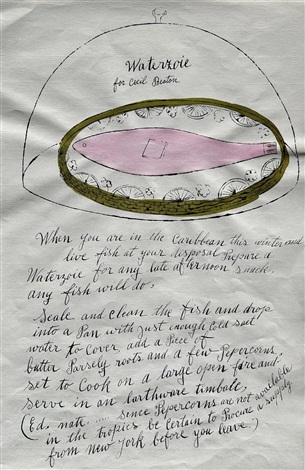 Waterzoie
for Cecil Beaton
When you are in the Caribbean this winter and
live fish at your disposal Prepare a
Waterzoie for any late afternoon snack,
any fish will do,
Scale and clean the fish and drop
into a Pan with just enough Cold salt
water to Cover, add a Piece of
butter Parsely roots and a few Pepercorns,
set to Cook on a large open fire and,
serve in an earthware timbale,
(Ed. note, .... since Pepercorns are not available
in the tropics be Certain to Procure a supply
from New York before you leave.)